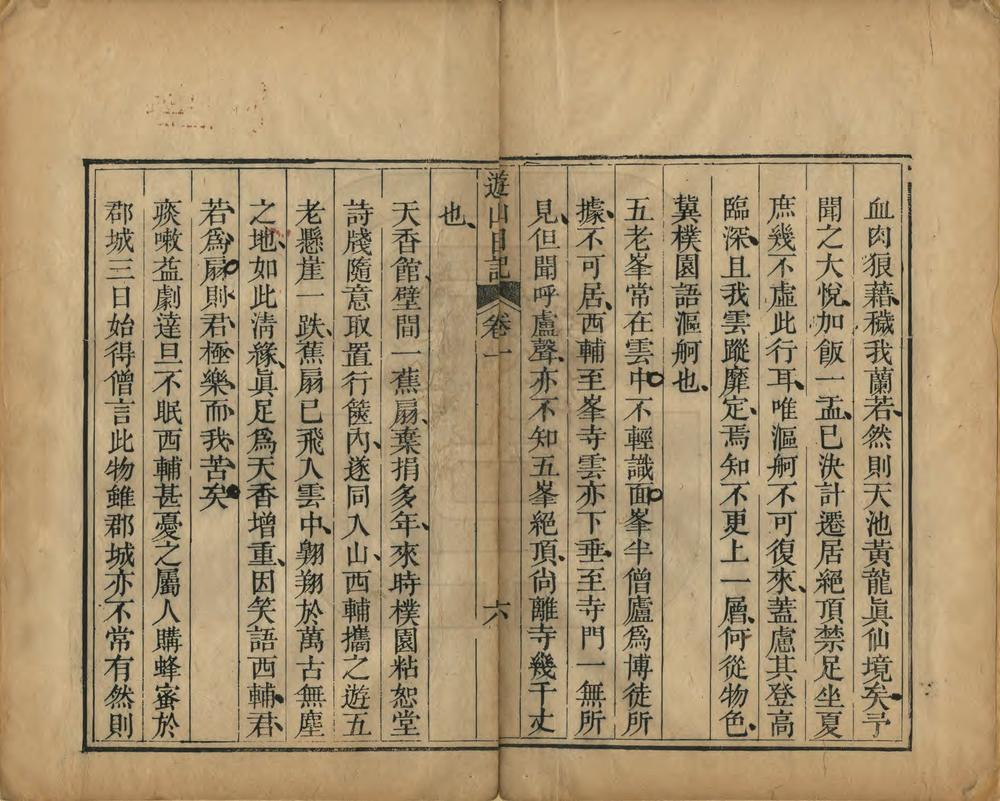 血肉狼藉穢我蘭若然則天池黃龍眞仙境矣予
聞之大悅加飯一盂已決計遷居絕頂禁足坐夏
庶幾不虛此行耳唯漚舸不可復來蓋慮其登高
臨深且我雲蹤靡定焉知不更上一層何從物色
冀樸園語漚舸也
五老峯常在雲中不輕識面峯半僧廬爲博徒所
據不可居西輔至峯寺雲亦下垂至寺門一無所
見但聞呼盧聲亦不知五峯絕頂尙離寺幾千丈
也
遊山日記 卷一 六
天香館壁間一蕉扇棄捐多年來時樸園粘恕堂
詩牋隨意取置行篋內遂同入山西輔攜之遊五
老懸崖一跌蕉扇已飛入雲中翱翔於萬古無塵
之地如此淸緣眞足爲天香增重因笑語西輔君
若爲扇則君極樂而我苦矣
痰嗽益劇達旦不眠西輔甚憂之屬人購蜂蜜於
郡城三日始得僧言此物雖郡城亦不常有然則